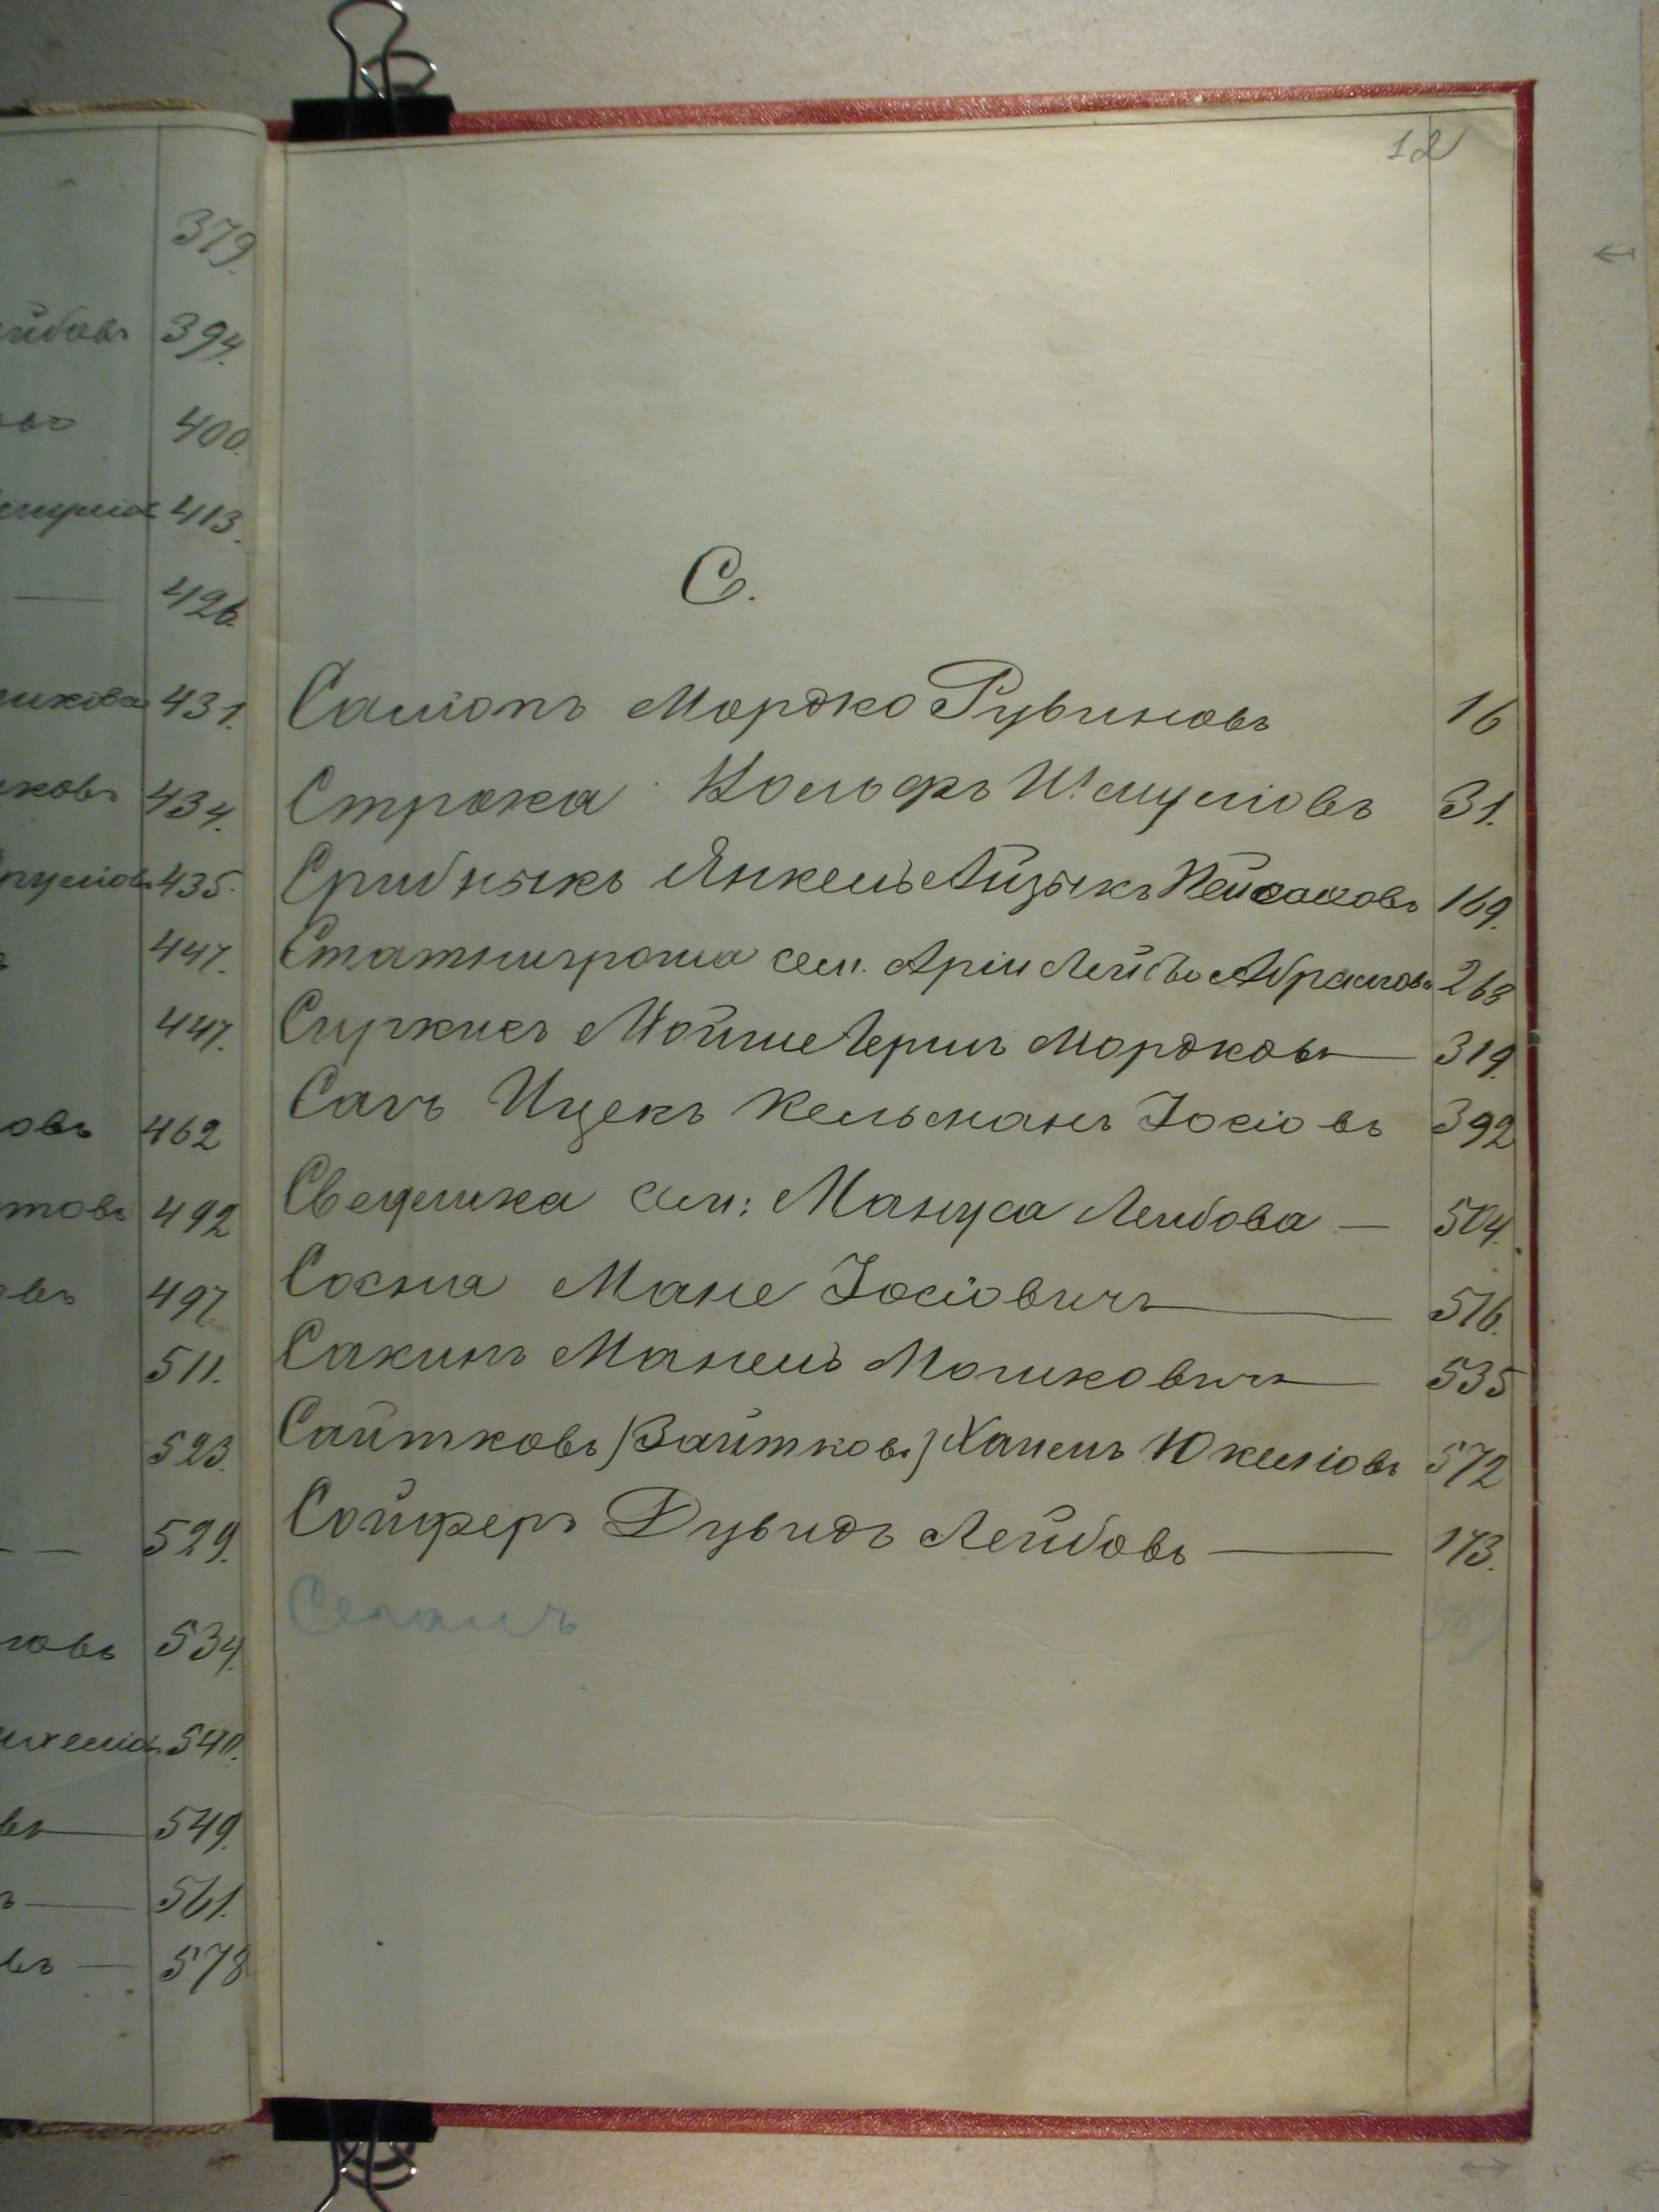 379.
ейбовъ 394.
овъ 400.
413.
— 426
431.
ковъ 434.
435.
447.
447.
овъ 462
товъ 492
овъ 497.
511.
523.
— — 529.
овъ 534.
540.
въ — 549.
ъ — 561.
въ — 578
12
С.
Саліопъ Мордко Рувиновъ 16
Строка Вольфъ Шмуліовъ 31.
Срибныкъ Янкель Айзыкъ Пейсаховъ 169.
Статнигроша сем. Арiи Лейбъ Абрамовъ 268
Сиркисъ Мойше Гершъ Мордковъ — 319.
Сачъ Ицекъ Кельманъ Іосіовъ 392
Сведлика сем: Мануса Лейбова — 504.
Сосна Мане Іосіовичъ — 516.
Сакинъ Манель Мошковичъ — 535
Сайтковъ /Зайтковъ/ Ханель Юкеліовъ 572
Сойферъ Дувидъ Лейбовъ — 173.